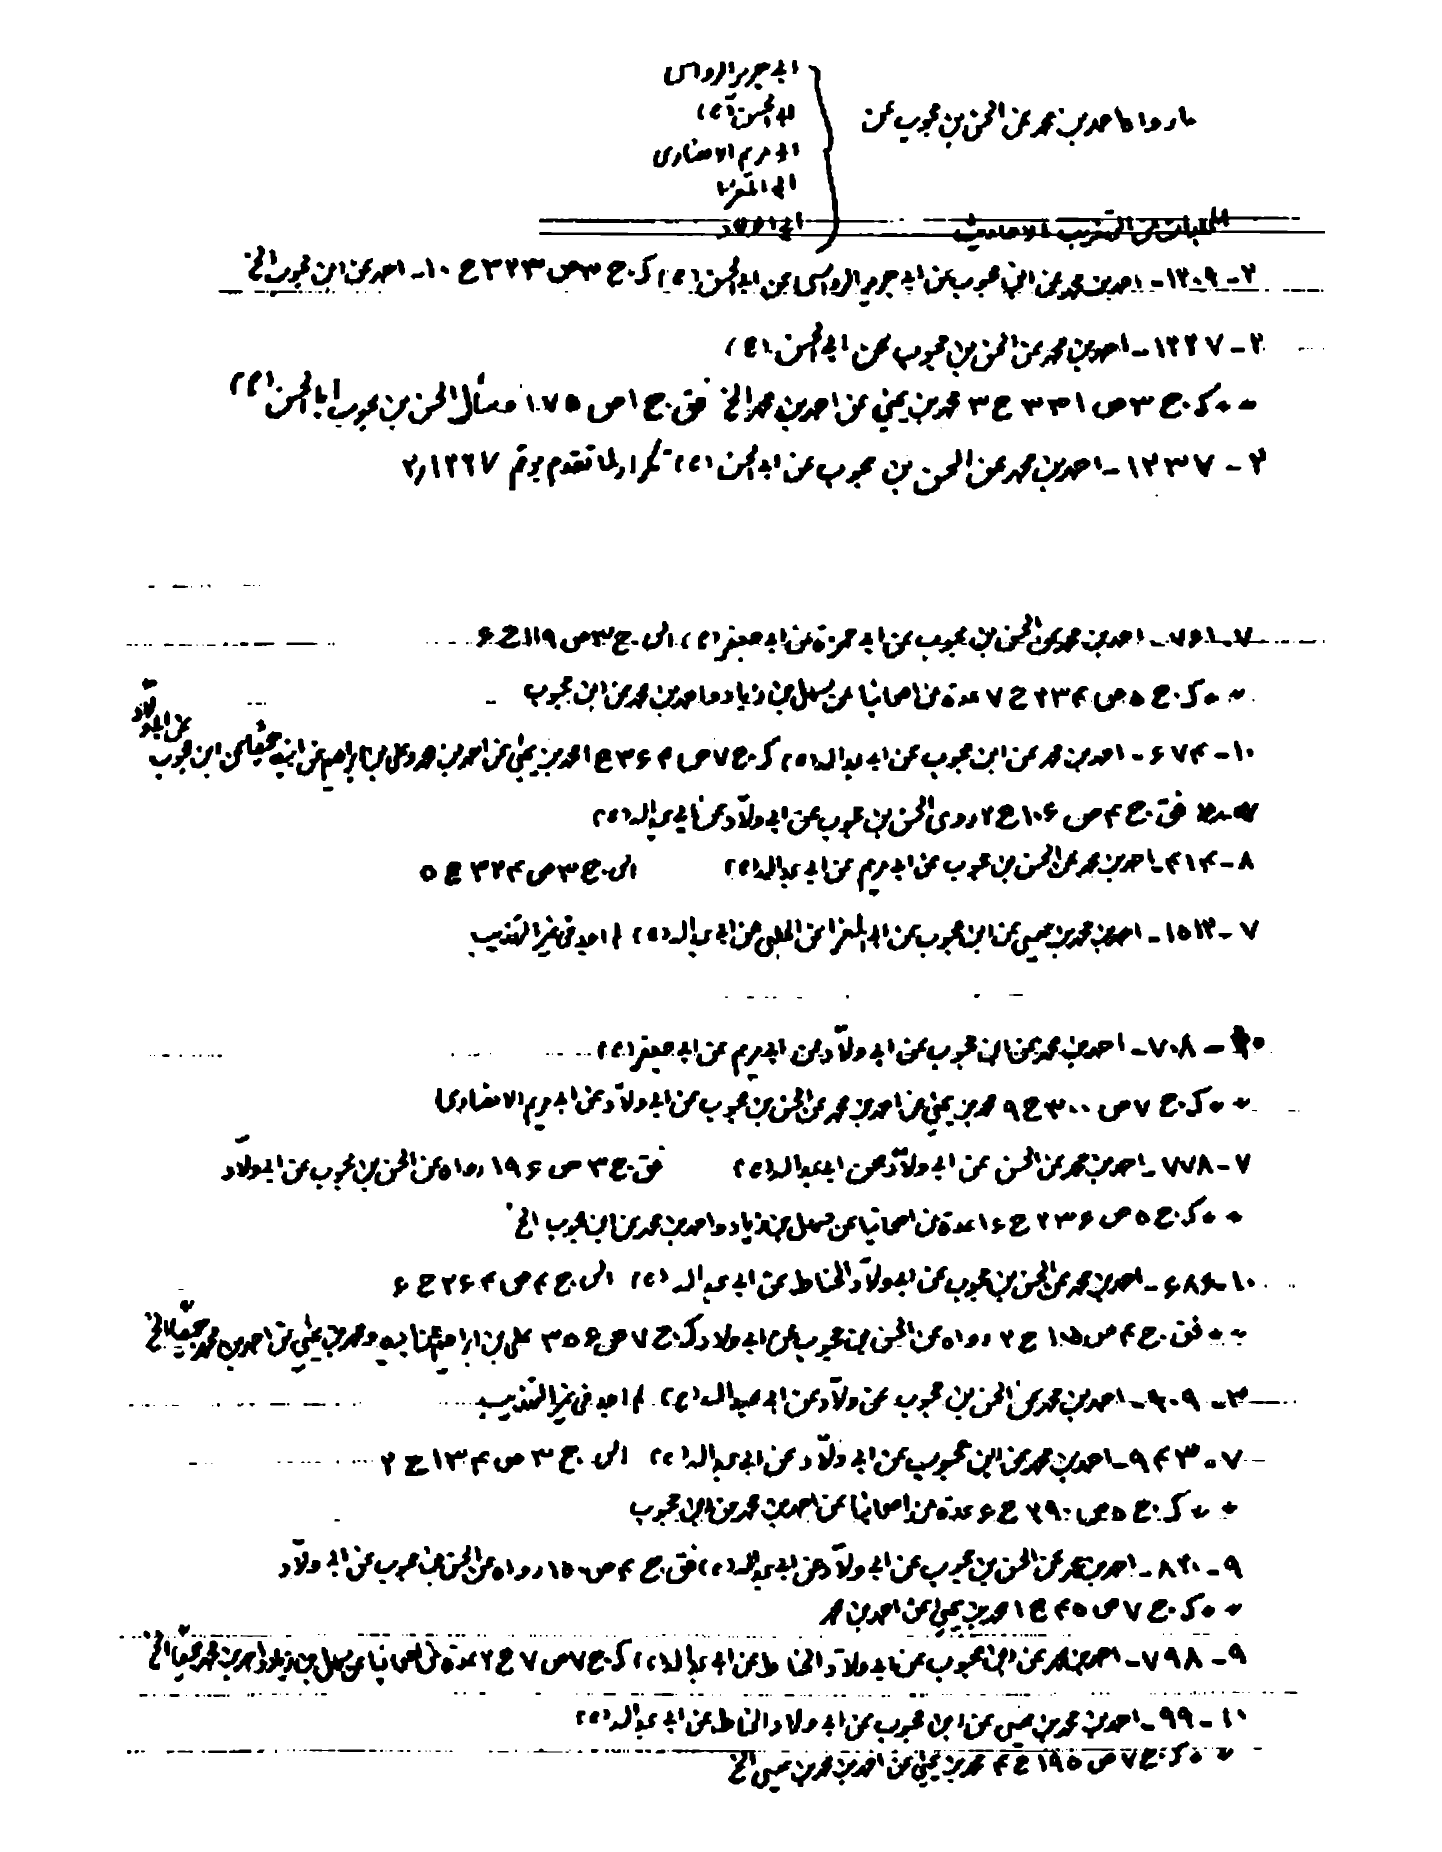 ما رواه احمد بن محمد عن الحسن بن محبوب عن
ابی جریر الرواسی
ابی الحسن (ع)
ابی مریم الانصاری
ابی المغرا
ابی ولاد
من التهذیب الاحادیث
۲ - ۱۲۰۹ - احمد بن محمد عن ابن محبوب عن ابی جریر الرواسی عن ابی الحسن (ع) کـ ج ۳ ص ۳۲۳ ح ۱۰ - احمد عن ابن محبوب الخ
۲ - ۱۲۲۷ - احمد بن محمد عن الحسن بن محبوب عن ابی الحسن (ع)
٠٠ کـ ج ۳ ص ۳۳۱ ح ۳ محمد بن یحیی عن احمد بن محمد الخ فق ج ۱ ص ۱۷۵ و سأل الحسن بن محبوب ابا الحسن (ع)
۲ - ۱۲۳۷ - احمد بن محمد عن الحسن بن محبوب عن ابی الحسن (ع) تکرار لما تقدم برقم ۲٫۱۲۲۷
۷ - ۷۶۱ - احمد بن محمد عن الحسن بن محبوب عن ابی حمزة عن ابی جعفر (ع) الی ج ۳ ص ۱۱۹ ح ۶
٠٠ کـ ج ۵ ص ۲۳۴ ح ۷ عدة من اصحابنا عن سهل بن زیاد و احمد بن محمد عن ابن محبوب
۱۰ - ۶۷۴ - احمد بن محمد عن ابن محبوب عن ابی عبدالله (ع) کـ ج ۷ ص ۳۶۴ ح ۱ محمد بن یحیی عن احمد بن محمد و علی بن ابراهیم عن ابیه جمیعا عن ابن محبوب عن ابی ولّاد
فق ج ۴ ص ۱۰۶ ح ۲ روی الحسن بن محبوب عن ابی ولّاد عن ابی عبدالله (ع)
۸ - ۴۱۴ - احمد بن محمد عن الحسن بن محبوب عن ابی مریم عن ابی عبدالله (ع) الی ج ۳ ص ۳۲۴ ح ۵
۷ - ۱۵۱۳ - احمد بن محمد بن عیسی عن ابن محبوب عن ابی المغرا عن الحلبی عن ابی عبدالله (ع) لم اجد فی غیر التهذیب
۱۰ - ۷۰۸ - احمد بن محمد عن ابن محبوب عن ابی ولّاد عن ابی مریم عن ابی جعفر (ع)
٠٠ کـ ج ۷ ص ۳۰۰ ح ۹ محمد بن یحیی عن احمد بن محمد عن الحسن بن محبوب عن ابی ولّاد عن ابی مریم الانصاری
۷ - ۷۷۸ - احمد بن محمد عن الحسن عن ابی ولّاد عن ابی عبدالله (ع) فق ج ۳ ص ۱۹۶ رواه عن الحسن بن محبوب عن ابی ولّاد
٠٠ کـ ج ۵ ص ۲۳۶ ح ۱۶ عدة من اصحابنا عن سهل بن زیاد و احمد بن محمد عن ابن محبوب الخ
۱۰ - ۶۸۶ - احمد بن محمد عن الحسن بن محبوب عن ابی ولّاد الحناط عن ابی عبدالله (ع) الی ج ۴ ص ۲۶۴ ح ۶
٠٠ فق ج ۴ ص ۱۰۵ ح ۲ رواه عن الحسن بن محبوب عن ابی ولاد کـ ج ۷ ص ۳۵۶ علی بن ابراهیم عن ابیه و محمد بن یحیی عن احمد بن محمد جمیعا الخ
۳ - ۹۰۹ - احمد بن محمد عن الحسن بن محبوب عن ولّاد عن ابی عبدالله (ع) لم اجد فی غیر التهذیب
۷ - ۹۴۳ - احمد بن محمد عن ابن محبوب عن ابی ولّاد عن ابی عبدالله (ع) الی ج ۳ ص ۱۳۴ ح ۲
٠٠ کـ ج ۵ ص ۲۹۰ ح ۶ عدة من اصحابنا عن احمد بن محمد عن ابن محبوب
۹ - ۸۲۰ - احمد بن محمد عن الحسن بن محبوب عن ابی ولّاد عن ابی عبدالله (ع) فق ج ۴ ص ۱۵۰ رواه عن الحسن بن محبوب عن ابی ولّاد
٠٠ کـ ج ۷ ص ۴۵ ح ۱ محمد بن یحیی عن احمد بن محمد
۹ - ۷۹۸ - احمد بن محمد عن ابن محبوب عن ابی ولّاد الحناط عن ابی عبدالله (ع) کـ ج ۷ ص ۷ ح ۲ عدة من اصحابنا عن سهل بن زیاد و احمد بن محمد جمیعا الخ
۱۰ - ۹۹ - احمد بن محمد بن عیسی عن ابن محبوب عن ابی ولاد الحناط عن ابی عبدالله (ع)
٠٠ کـ ج ۷ ص ۱۹۵ ح ۴ محمد بن یحیی عن احمد بن محمد بن عیسی الخ